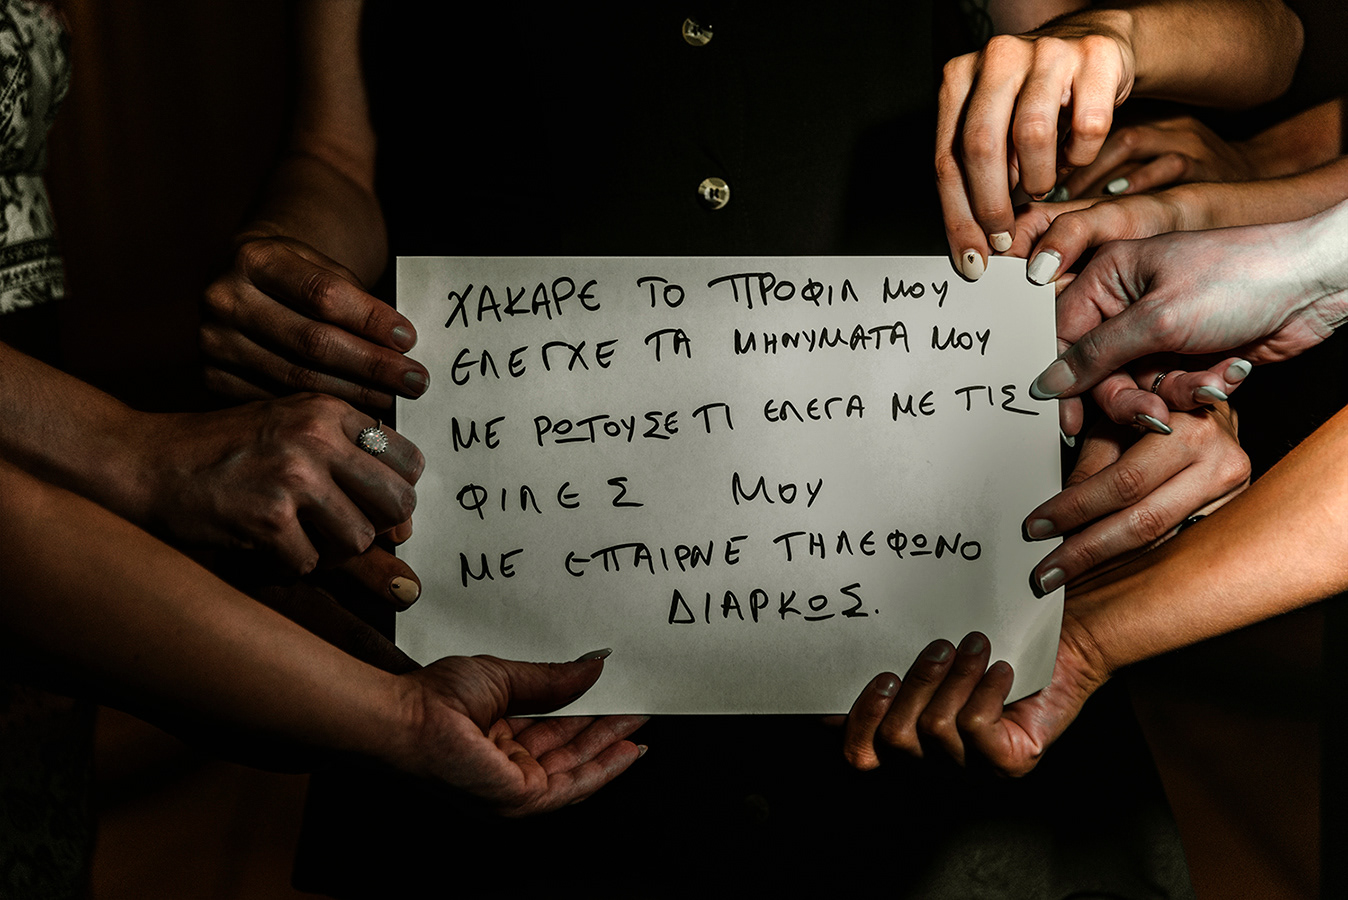 ΧΑΚΑΡΕ ΤΟ ΠΡΟΦΙΛ ΜΟΥ
ΕΛΕΓΧΕ ΤΑ ΜΗΝΥΜΑΤΑ ΜΟΥ
ΜΕ ΡΩΤΟΥΣΕ ΤΙ ΕΛΕΓΑ ΜΕ ΤΙΣ
ΦΙΛΕΣ ΜΟΥ
ΜΕ ΕΠΑΙΡΝΕ ΤΗΛΕΦΩΝΟ
ΔΙΑΡΚΩΣ.